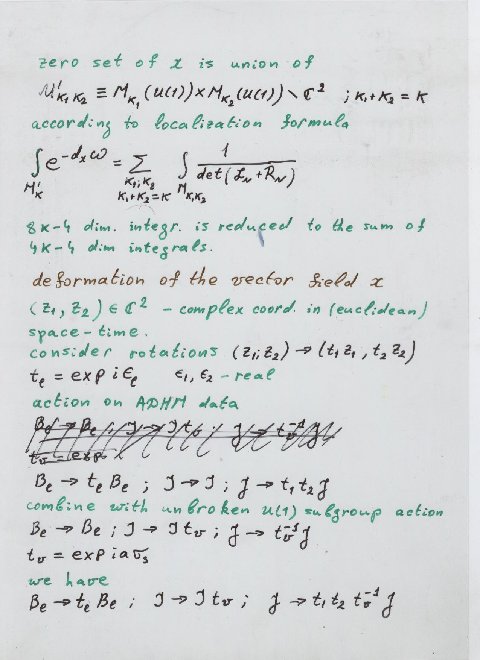 zero set of x is union of
M'K₁K₂ ≡ MK₁(U(1))×MK₂(U(1))∖ℂ² ; K₁+K₂=K
according to localization formula
∫M'K e^{-dₓω} = ∑K₁,K₂ K₁+K₂=K ∫MK₁K₂ 1/det(𝓛N+RN)
8K-4 dim. integr. is reduced to the sum of
4K-4 dim integrals.
deformation of the vector field x
(z₁, z₂) ∈ ℂ² - complex coord. in (euclidean)
space-time.
consider rotations (z₁,z₂) → (t₁z₁, t₂z₂)
tℓ = exp iϵℓ ϵ₁, ϵ₂ - real
action on ADHM data
Bℓ → tℓ Bℓ ; J → J ; J → t₁t₂J
combine with unbroken U(1) subgroup action
Bℓ → Bℓ ; J → J tᵥ ; J → tᵥ⁻¹ J
tᵥ = exp iaσ₃
we have
Bℓ → tℓ Bℓ ; J → J tᵥ ; J → t₁t₂ tᵥ⁻¹ J